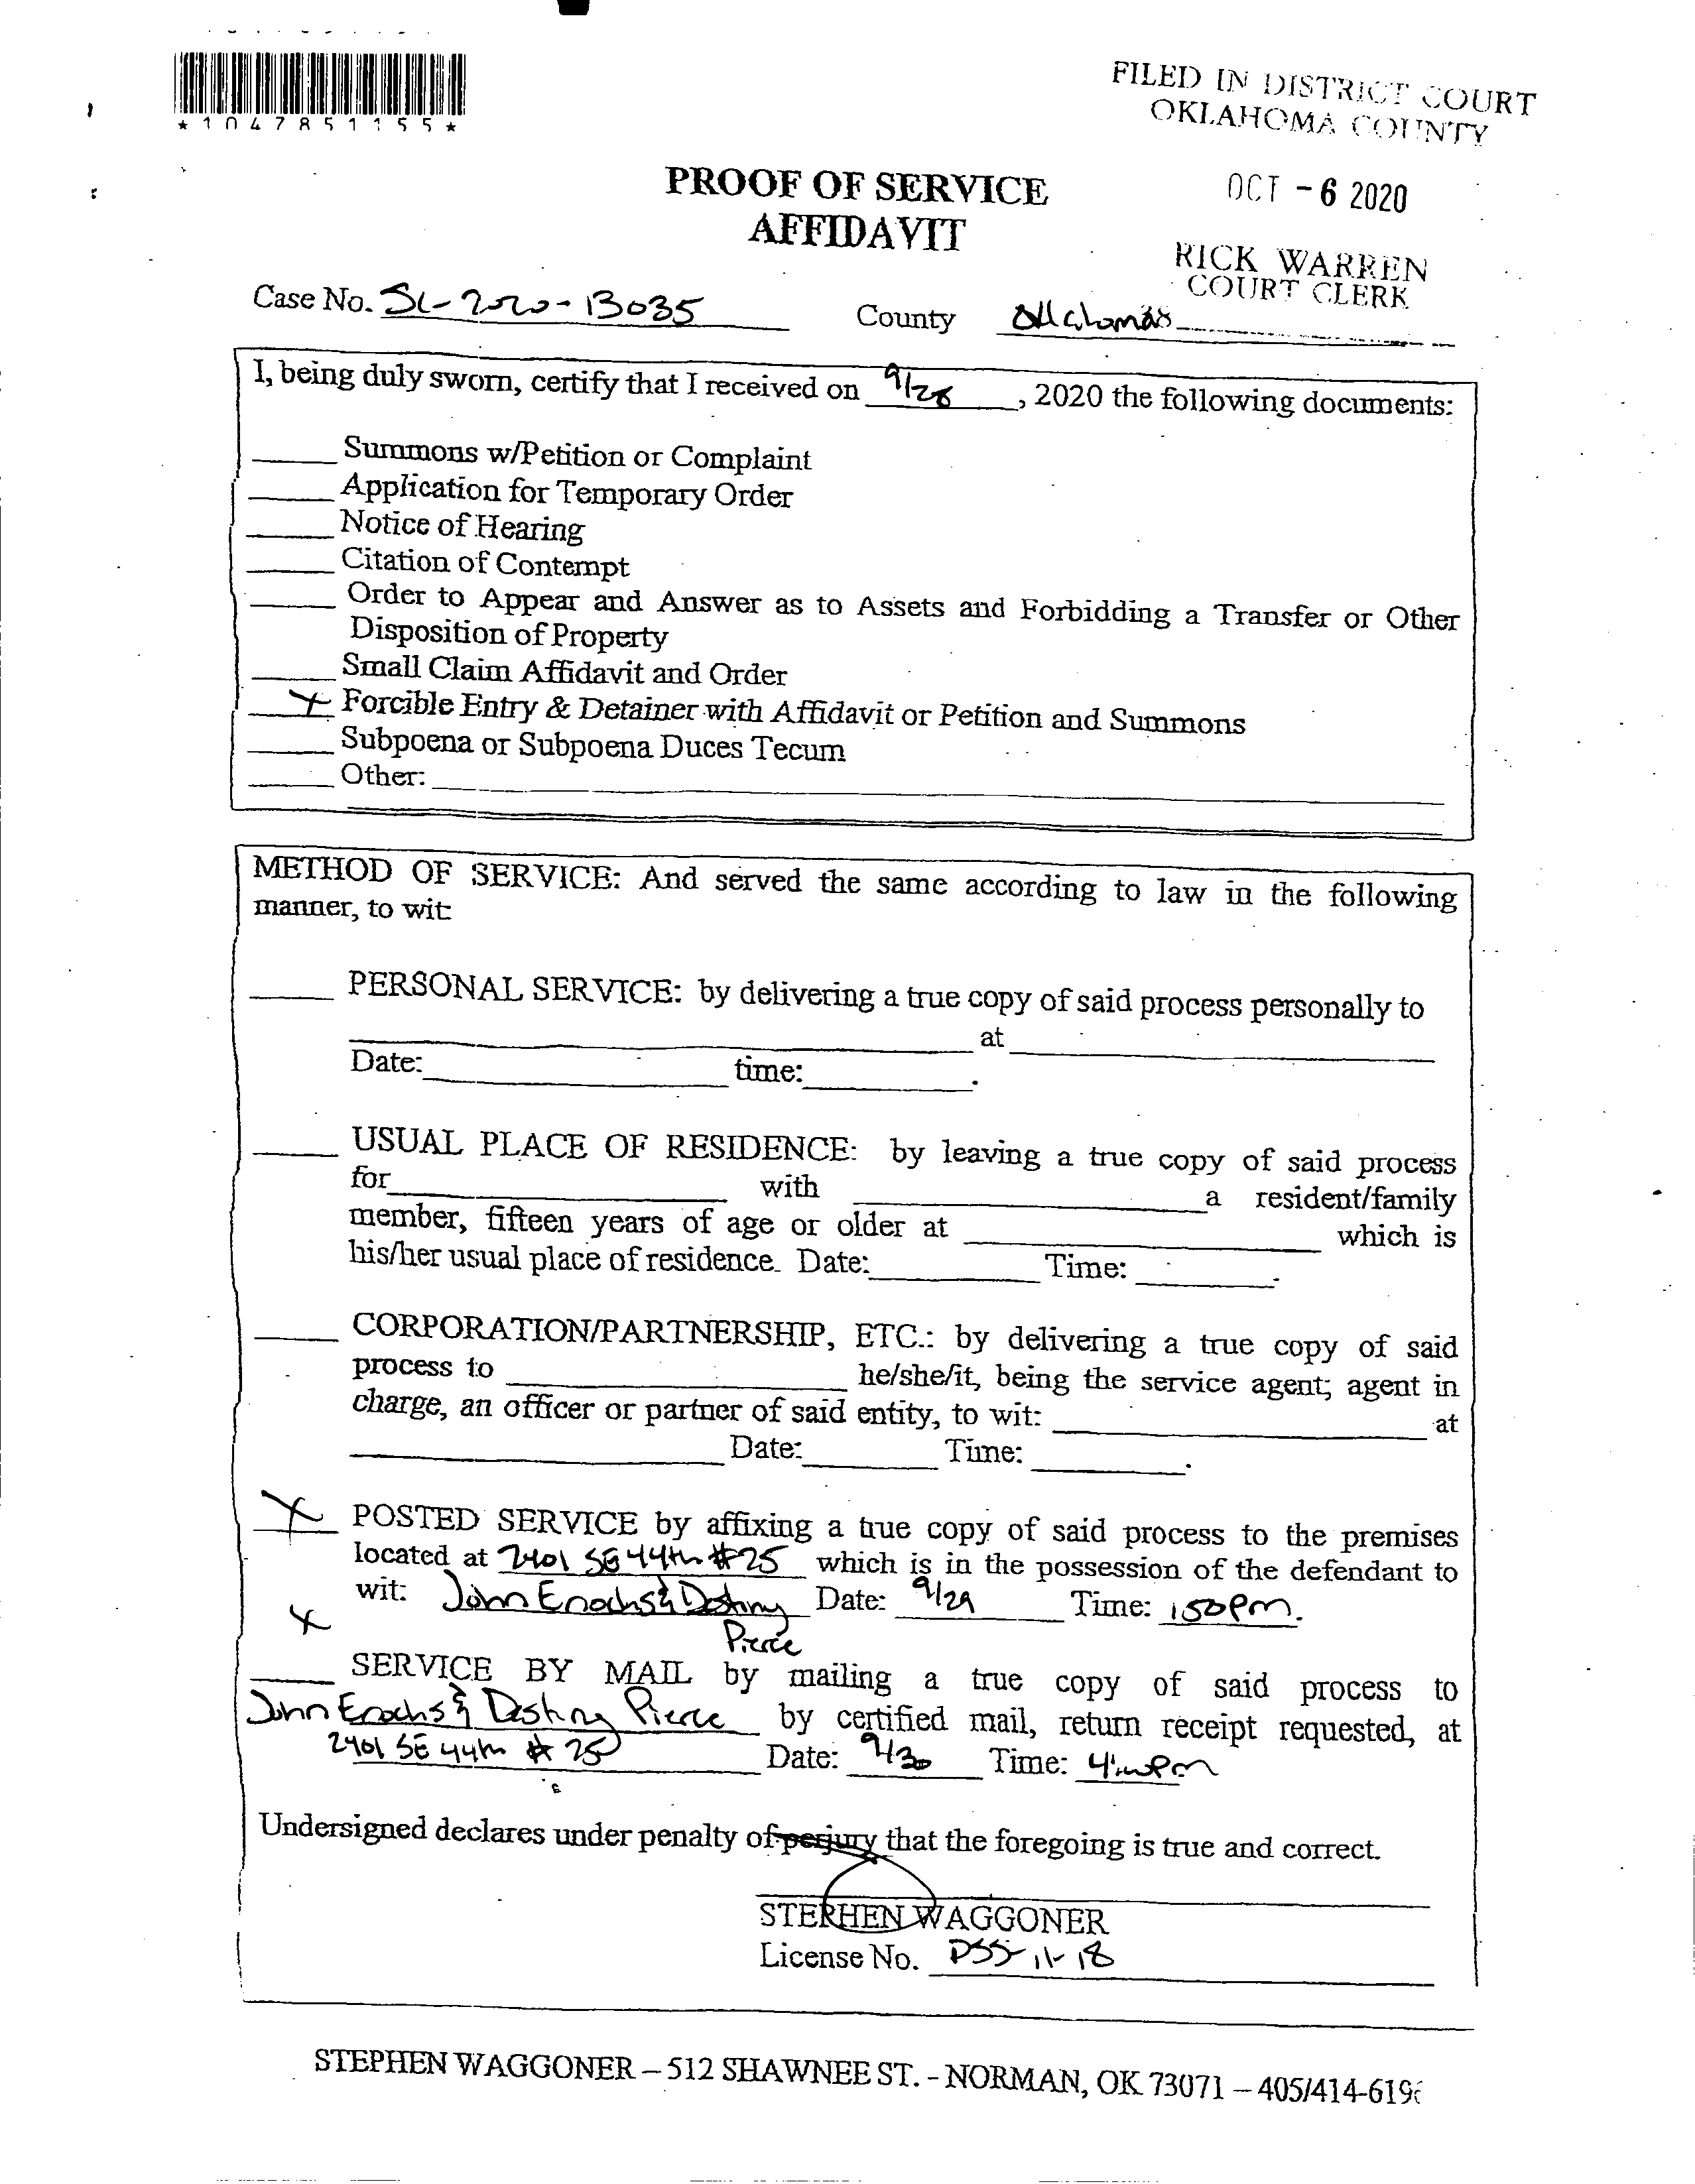 *1047851155*
FILED IN DISTRICT COURT
OKLAHOMA COUNTY
OCT - 6 2020
RICK WARREN
COURT CLERK
PROOF OF SERVICE
AFFIDAVIT
Case No. SC-2020-13035 County Oklahoma
I, being duly sworn, certify that I received on 9/28, 2020 the following documents:
Summons w/Petition or Complaint
Application for Temporary Order
Notice of Hearing
Citation of Contempt
Order to Appear and Answer as to Assets and Forbidding a Transfer or Other
Disposition of Property
Small Claim Affidavit and Order
X Forcible Entry & Detainer with Affidavit or Petition and Summons
Subpoena or Subpoena Duces Tecum
Other:
METHOD OF SERVICE: And served the same according to law in the following
manner, to wit:
PERSONAL SERVICE: by delivering a true copy of said process personally to
at
Date: time: .
USUAL PLACE OF RESIDENCE: by leaving a true copy of said process
for with a resident/family
member, fifteen years of age or older at which is
his/her usual place of residence. Date: Time: .
CORPORATION/PARTNERSHIP, ETC.: by delivering a true copy of said
process to he/she/it, being the service agent; agent in
charge, an officer or partner of said entity, to wit: at
Date: Time: .
X POSTED SERVICE by affixing a true copy of said process to the premises
located at 2401 SE 44th #25 which is in the possession of the defendant to
wit: John Enochs & Destiny Date: 9/29 Time: 150pm.
Pierce
X
SERVICE BY MAIL by mailing a true copy of said process to
John Enochs & Destiny Pierce by certified mail, return receipt requested, at
2401 SE 44th # 25 Date: 9/30 Time: 4:00pm
Undersigned declares under penalty of perjury that the foregoing is true and correct.
STEPHEN WAGGONER
License No. PSS-11-18
STEPHEN WAGGONER – 512 SHAWNEE ST. - NORMAN, OK 73071 – 405/414-6196